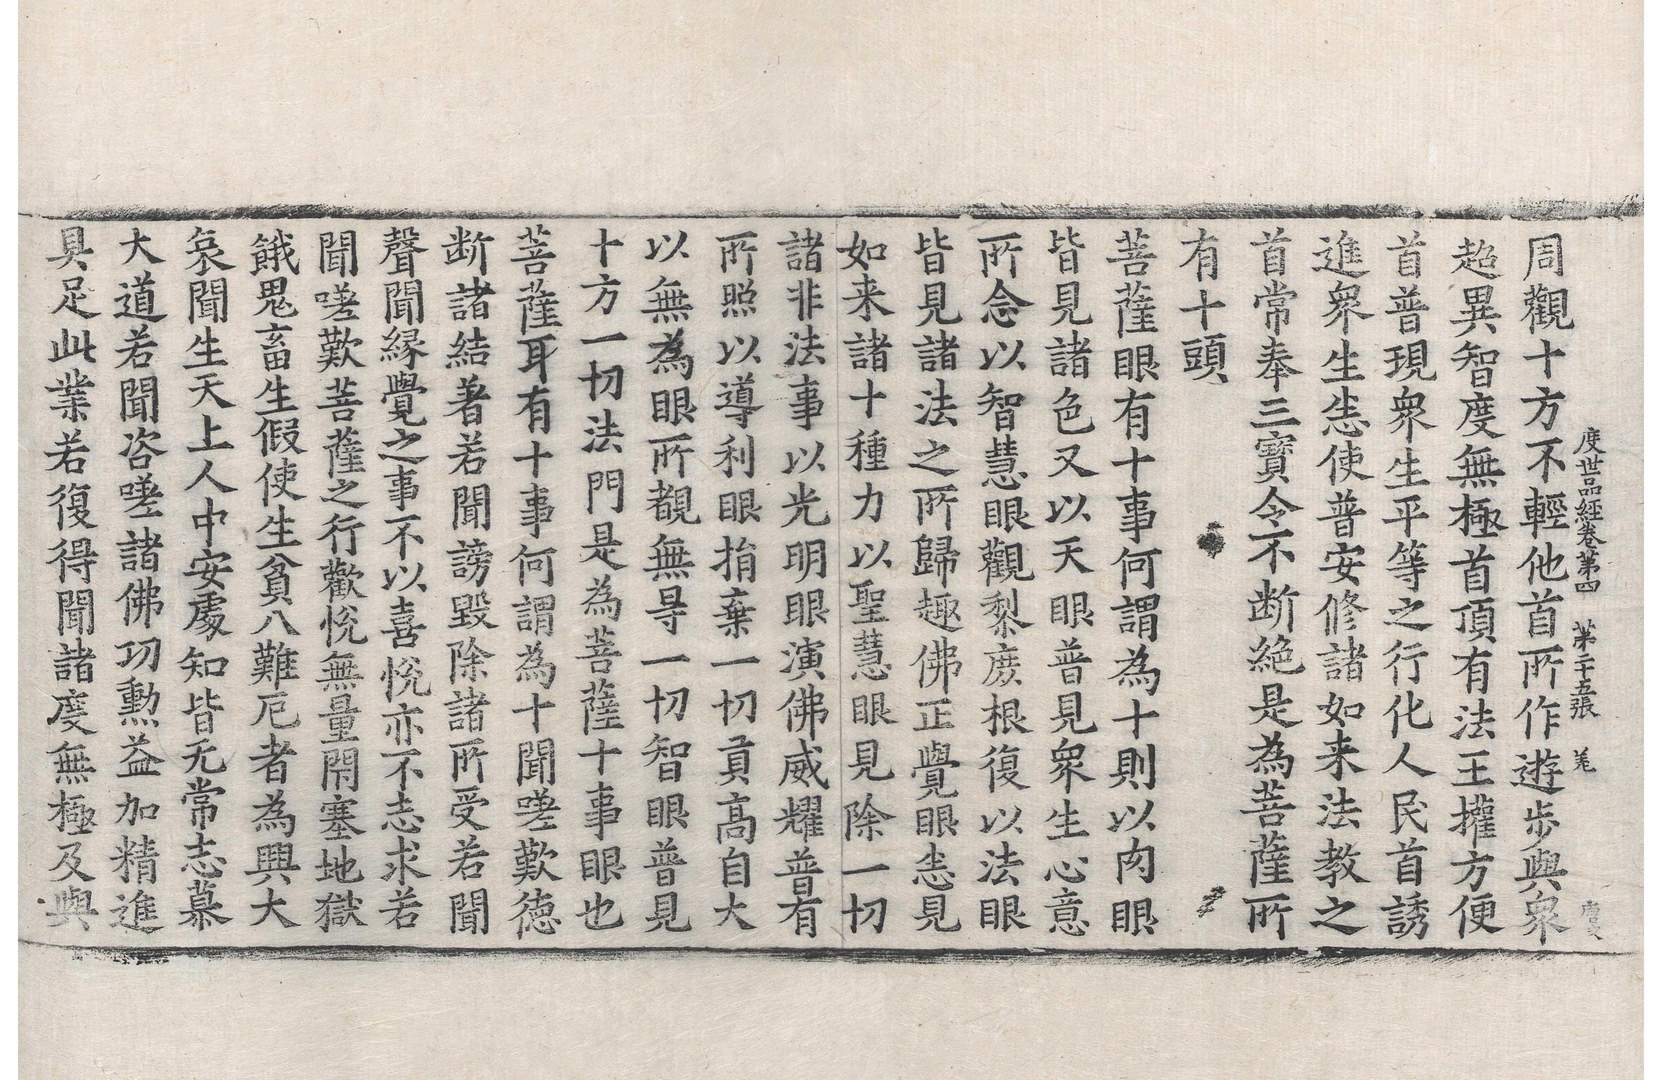 度世品經卷第四 第二十五張 羌
周觀十方不輕他首所作遊步與衆
超異智度無極首頂有法王權方便
首普現衆生平等之行化人民首誘
進衆生恙使普安修諸如来法教之
首常奉三寳令不断絶是為菩薩所
有十頭
菩薩眼有十事何謂為十則以肉眼
皆見諸色又以天眼普見衆生心意
所念以智慧眼觀黎庻根復以法眼
皆見諸法之所歸趣佛正覺眼恙見
如来諸十種力以聖慧眼見除一切
諸非法事以光明眼演佛威耀普有
所照以導利眼捐棄一切貢高自大
以無為眼所覩無㝵一切智眼普見
十方一切法門是為菩薩十事眼也
菩薩耳有十事何謂為十聞嗟歎德
断諸結著若聞謗毀除諸所受若聞
聲聞縁覺之事不以喜悅亦不志求若
聞嗟歎菩薩之行歡悅無量閇塞地獄
餓鬼畜生假使生貧八難厄者為興大
哀聞生天上人中安處知皆无常志慕
大道若聞咨嗟諸佛功勲益加精進
具足此業若復得聞諸度無極及與